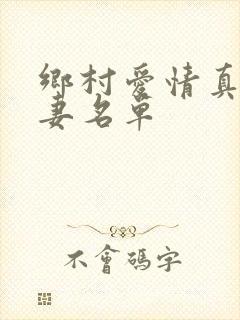 鄉村愛情真
妻名單
不會碼字